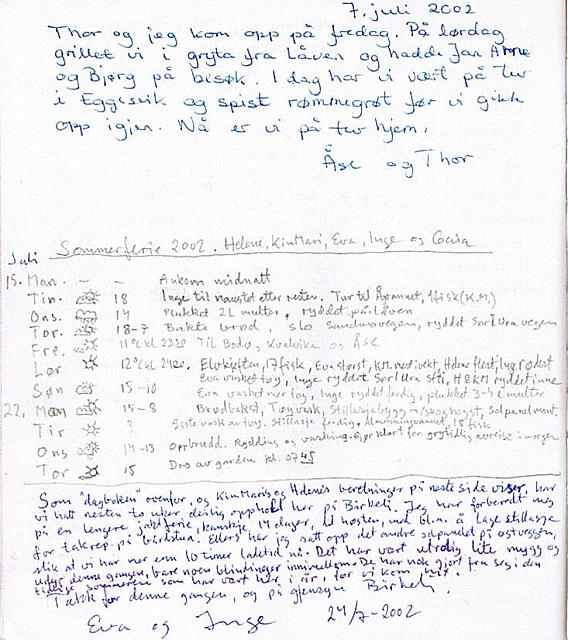 7. juli 2002
Thor og jeg kom opp på fredag. På lørdag
grillet vi i gryta fra Låven og hadde Jan Arne
og Bjørg på besøk. I dag har vi vært på tur
i Eggesvik og spist rømmegrøt før vi gikk
opp igjen. Nå er vi på tur hjem.
Åse og Thor
Juli Sommerferie 2002. Helene, KimMari, Eva, Inge og Gaia
15. Man. — — Ankom midnatt
Tir. 18 Inge til naustet etter resten. Tur til 1 fisk (K.M.)
Ons. 14 Plukket 2L multer, ryddet på Låven
Tor. 18-7 Bakte brød, slo Sandmovegen, ryddet Sørliura vegen
Fre. 11°C kl 2320 Til Bodø, Kvalvika og Åse
Lør 12°C kl 2420. Elvkjeften, 17 fisk, Eva størst, K.M. nest vekt, Helene flest, Inge rødest
Søn 15-10 Eva vasket tøy, Inge ryddet Sørliura sti, H & KM ryddet inne
Eva vasket mer tøy, Inge ryddet ferdig, plukket 3-4 L multer
22. Man 15-8 Brødbakst, Tøyvask, Stillasjebygg m/skoghogst, Solpanelmont.
Tir ? Siste vask av tøy. Stillasje ferdig. 18 fisk
Ons 14-13 Oppbrudd. Rydding og vasking. Gjør klart for avreise i morgen
Tor 15 Dro av garden kl. 0745
Som "dagboken" ovenfor, og KimMaris og Helenes beretninger på neste side viser, har
vi hatt nesten to uker deilig opphold her på Birkeli. Jeg har forberedt meg
på en lengre jaktferie, kanskje 14 dager, til høsten, med bl.a. å lage stillasje
for takrep. på bårdstua. Ellers har jeg satt opp det andre solpanelet på østveggen,
slik at vi har mer enn 10 timer ladetid nå. Det har vært utrolig lite mygg og
denne gangen, bare noen blindinger innimellom. De har nok gjort fra seg i den
sommeren som har vært her i år, før vi kom hit.
Takk for denne gangen, og på gjensyn Birkeli.
Eva og Inge 24/7-2002